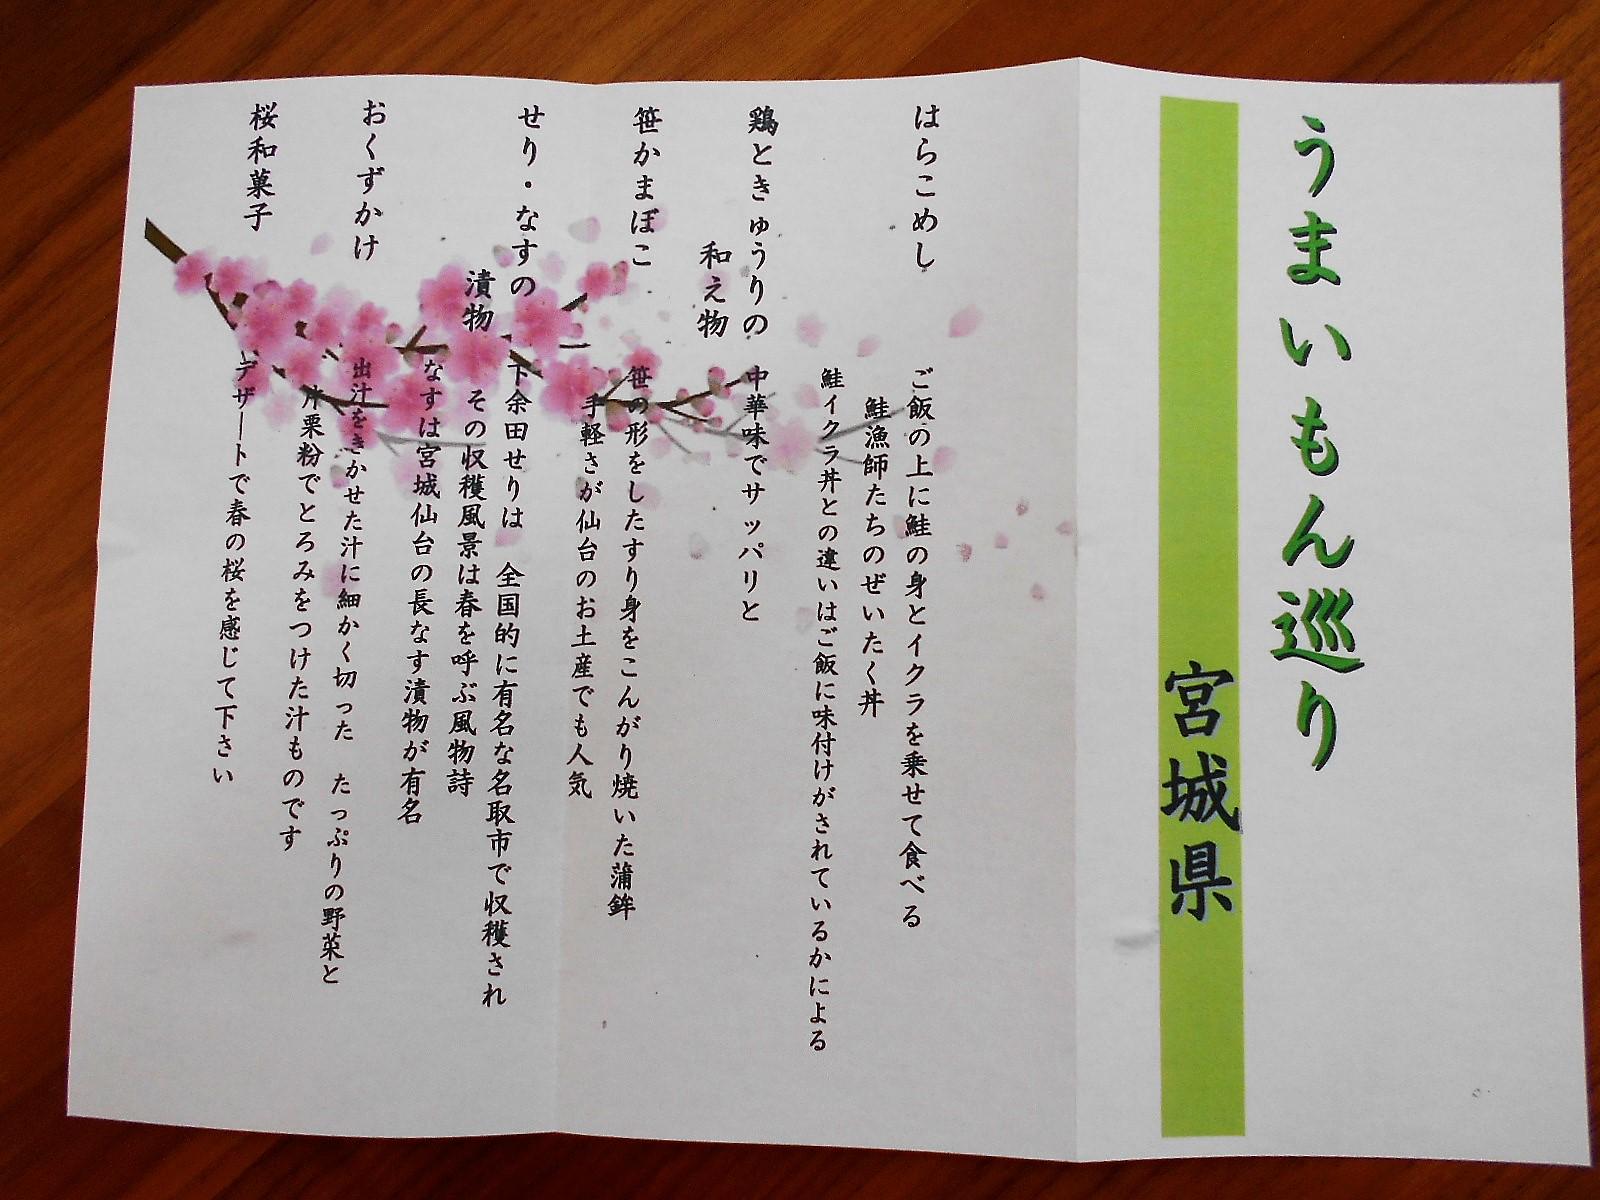 うまいもん巡り
宮城県
はらこめし
ご飯の上に鮭の身とイクラを乗せて食べる
鮭漁師たちのぜいたく丼
鮭イクラ丼との違いはご飯に味付けがされているかによる
鶏ときゅうりの
和え物
中華味でサッパリと
笹かまぼこ
笹の形をしたすり身をこんがり焼いた蒲鉾
手軽さが仙台のお土産でも人気
せり・なすの
漬物
下余田せりは 全国的に有名な名取市で収穫され
その収穫風景は春を呼ぶ風物詩
なすは宮城仙台の長なす漬物が有名
おくずかけ
出汁をきかせた汁に細かく切った たっぷりの野菜と
片栗粉でとろみをつけた汁ものです
桜和菓子
デザートで春の桜を感じて下さい